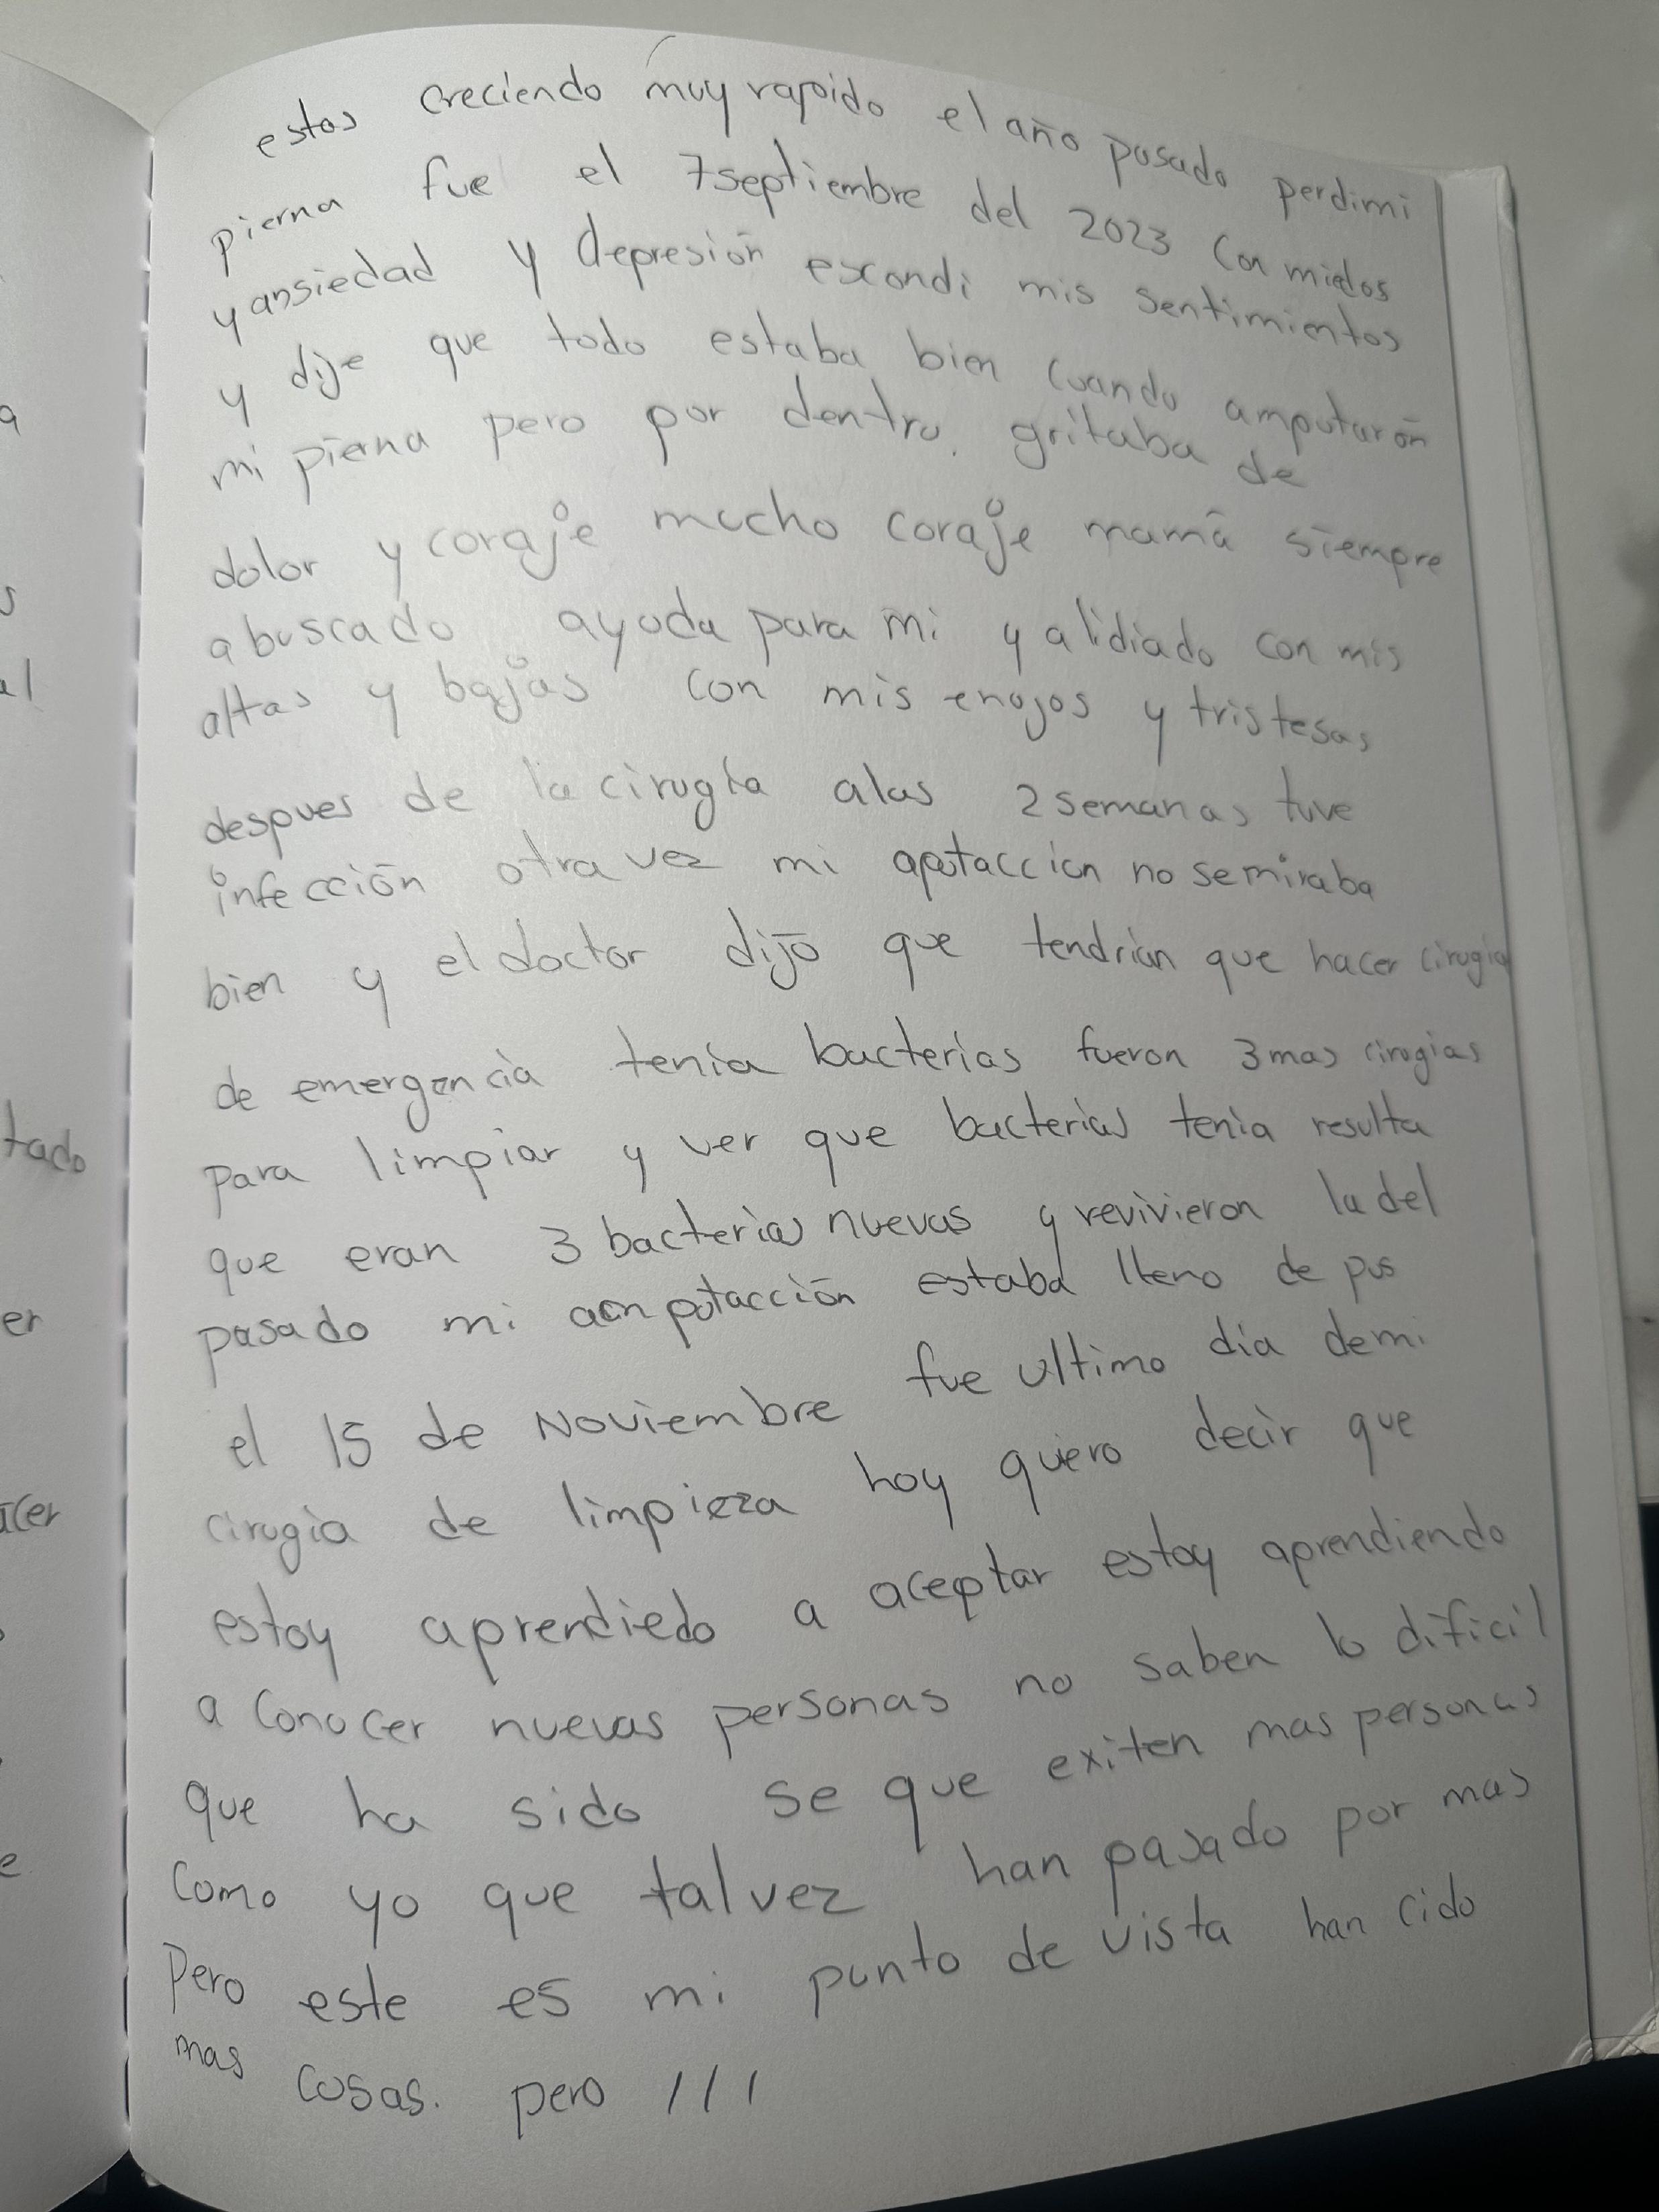 a
s
al
tado
er
acer
e
estas creciendo muy rapido el año pasado perdi mi
pierna fue el 7 septiembre del 2023 Con miedos
y ansiedad y depresión escondi mis sentimientos
y dije que todo estaba bien cuando amputarón
mi pierna pero por dentro. gritaba de
dolor y coraje mucho coraje mamá siempre
a buscado ayuda para mi y a lidiado con mis
altas y bajas con mis enojos y tristesas
despues de la cirugia alas 2 semanas tuve
infección otra vez mi no se miraba
bien y el doctor dijó que tendrian que hacer cirugia
de emergencia tenia bacterias fueron 3 mas cirugias
para limpiar y ver que bacterias tenia resulta
que eran 3 bacterias nuevas y revivieron la del
pasado mi estaba lleno de pus
el 15 de Noviembre fue ultimo dia de mi
cirugia de limpieza hoy quiero decir que
estoy aprendiedo a aceptar estoy aprendiendo
a conocer nuevas personas no saben lo dificil
que ha sido se que exiten mas personas
Como yo que talvez han pasado por mas
Pero este es mi punto de vista han cido
mas cosas. pero ///